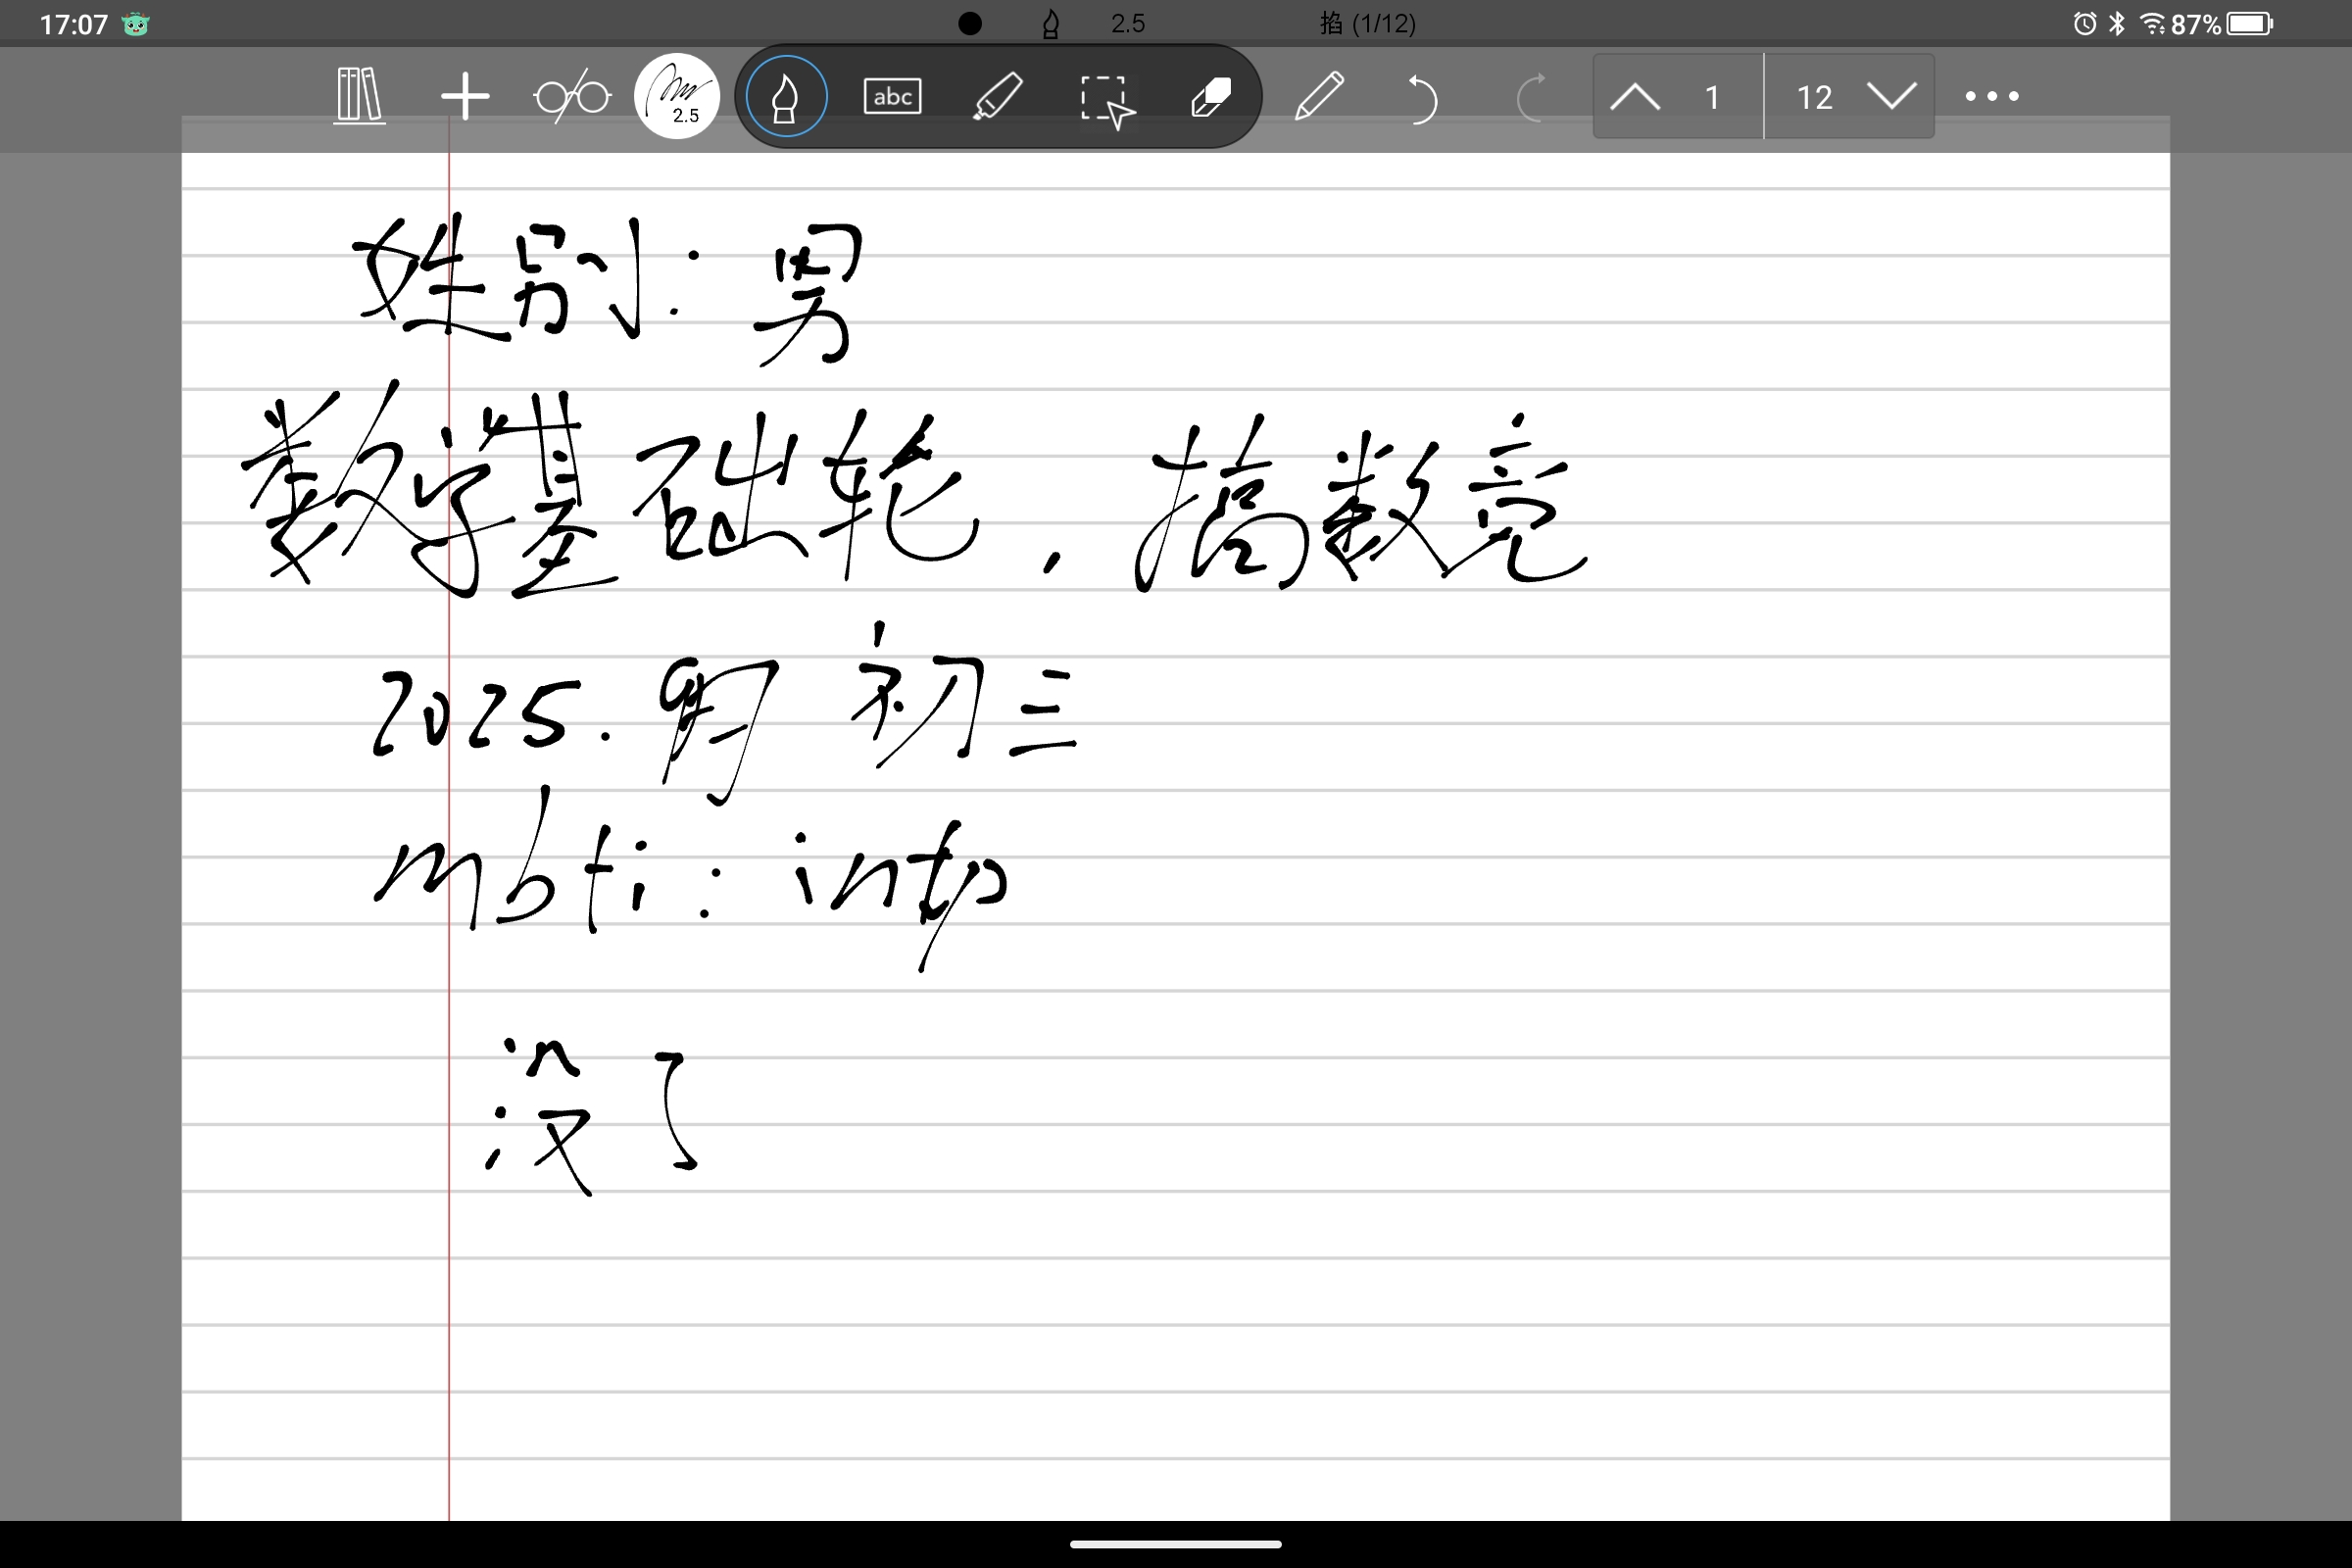 17:07 2.5 掐 (1/12) 87%
2.5 abc 1 12
姓别：男
数学基础轮，搞数竞
2025. 明 初三
mbti: intp
没了